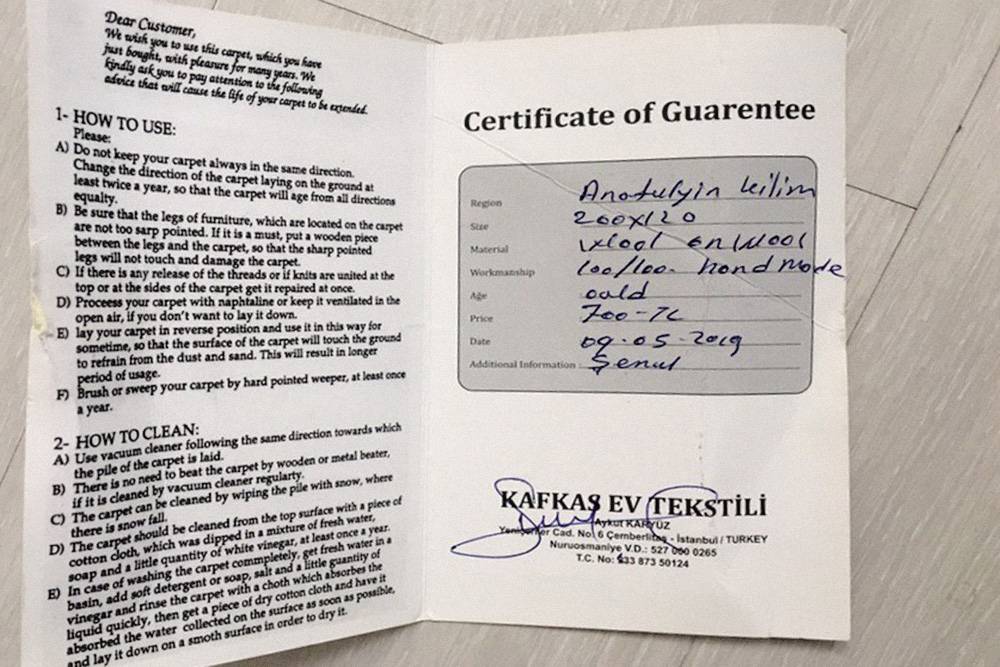 Dear Customer,
We wish you to use this carpet, which you have
just bought, with pleasure for many years. We
kindly ask you to pay attention to the following
advice that will cause the life of your carpet to be extended.
1- HOW TO USE:
Please:
A) Do not keep your carpet always in the same direction.
Change the direction of the carpet laying on the ground at
least twice a year, so that the carpet will age from all directions
equalty.
B) Be sure that the legs of furniture, which are located on the carpet
are not too sarp pointed. If it is a must, put a wooden piece
between the legs and the carpet, so that the sharp pointed
legs will not touch and damage the carpet.
C) If there is any release of the threads or if knits are united at the
top or at the sides of the carpet get it repaired at once.
D) Proceess your carpet with naphtaline or keep it ventilated in the
open air, if you don't want to lay it down.
E) lay your carpet in reverse position and use it in this way for
sometime, so that the surface of the carpet will touch the ground
to refrain from the dust and sand. This will result in longer
period of usage.
F) Brush or sweep your carpet by hard pointed weeper, at least once
a year.
2- HOW TO CLEAN:
A) Use vacuum cleaner following the same direction towards which
the pile of the carpet is laid.
B) There is no need to beat the carpet by wooden or metal beater,
if it is cleaned by vacuum cleaner regularty.
C) The carpet can be cleaned by wiping the pile with snow, where
there is snow fall.
D) The carpet should be cleaned from the top surface with a piece of
cotton cloth, which was dipped in a mixture of fresh water,
soap and a little quantity of white vinegar, at least once a year.
E) In case of washing the carpet commpletely, get fresh water in a
basin, add soft detergent or soap, salt and a little guantity of
vinegar and rinse the carpet with a choth which absorbes the
liquid quickly, then get a piece of dry cotton cloth and have it
absorbed the water collected on the surface as soon as possible,
and lay it down on a smoth surface in order to dry it.
Certificate of Guarentee
Region Anatulyin kilim
Size 200x120
Material wool en wool
Workmanship 100/100. hand mode
Age oald
Price 700-TL
Date 09.05.2019
Additional Information : Şenul
KAFKAS EV TEKSTİLİ
Aykut KARYÜZ
Yeniçeriler Cad. No: 6 Çemberlitaş - İstanbul / TURKEY
Nuruosmaniye V.D.: 527 000 0265
T.C. No: 233 873 50124